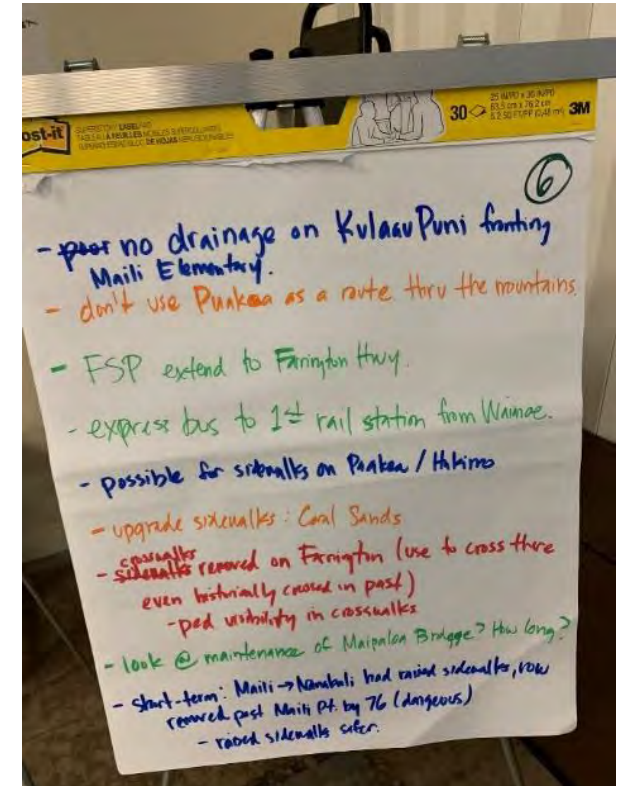 Post-it
SUPER STICKY
30
25 IN/PO x 30 IN/PO
63,5 cm x 76,2 cm
3M
6
- poor no drainage on KulaauPuni fronting
Maili Elementary.
- don't use Paakea as a route thru the mountains.
- FSP extend to Farrington Hwy.
- express bus to 1st rail station from Wainae.
- possible for sidewalks on Paakea / Hakimo
- upgrade sidewalks : Coral Sands
crosswalks
- sidewalks removed on Farrington (use to cross there
even historically crossed in past)
- ped visibility in crosswalks
- look @ maintenance of Maipalaa Bridgge? How long?
- short-term: Maili → Nanakuli had raised sidewalks, now
removed past Maili Pt. by 76 (dangeous)
- raised sidewalks safer.